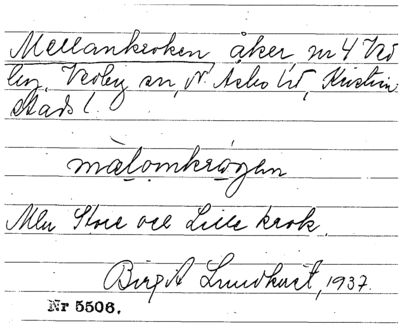 Mellankroken, åker, nr 4 Ved
by, Vedby sn, N. Åsbo hd, Kristian
stads l.
mælomkrogen
Mln Store och Lille krok.
Birgit Lundkvist, 1937.
Nr 5506.